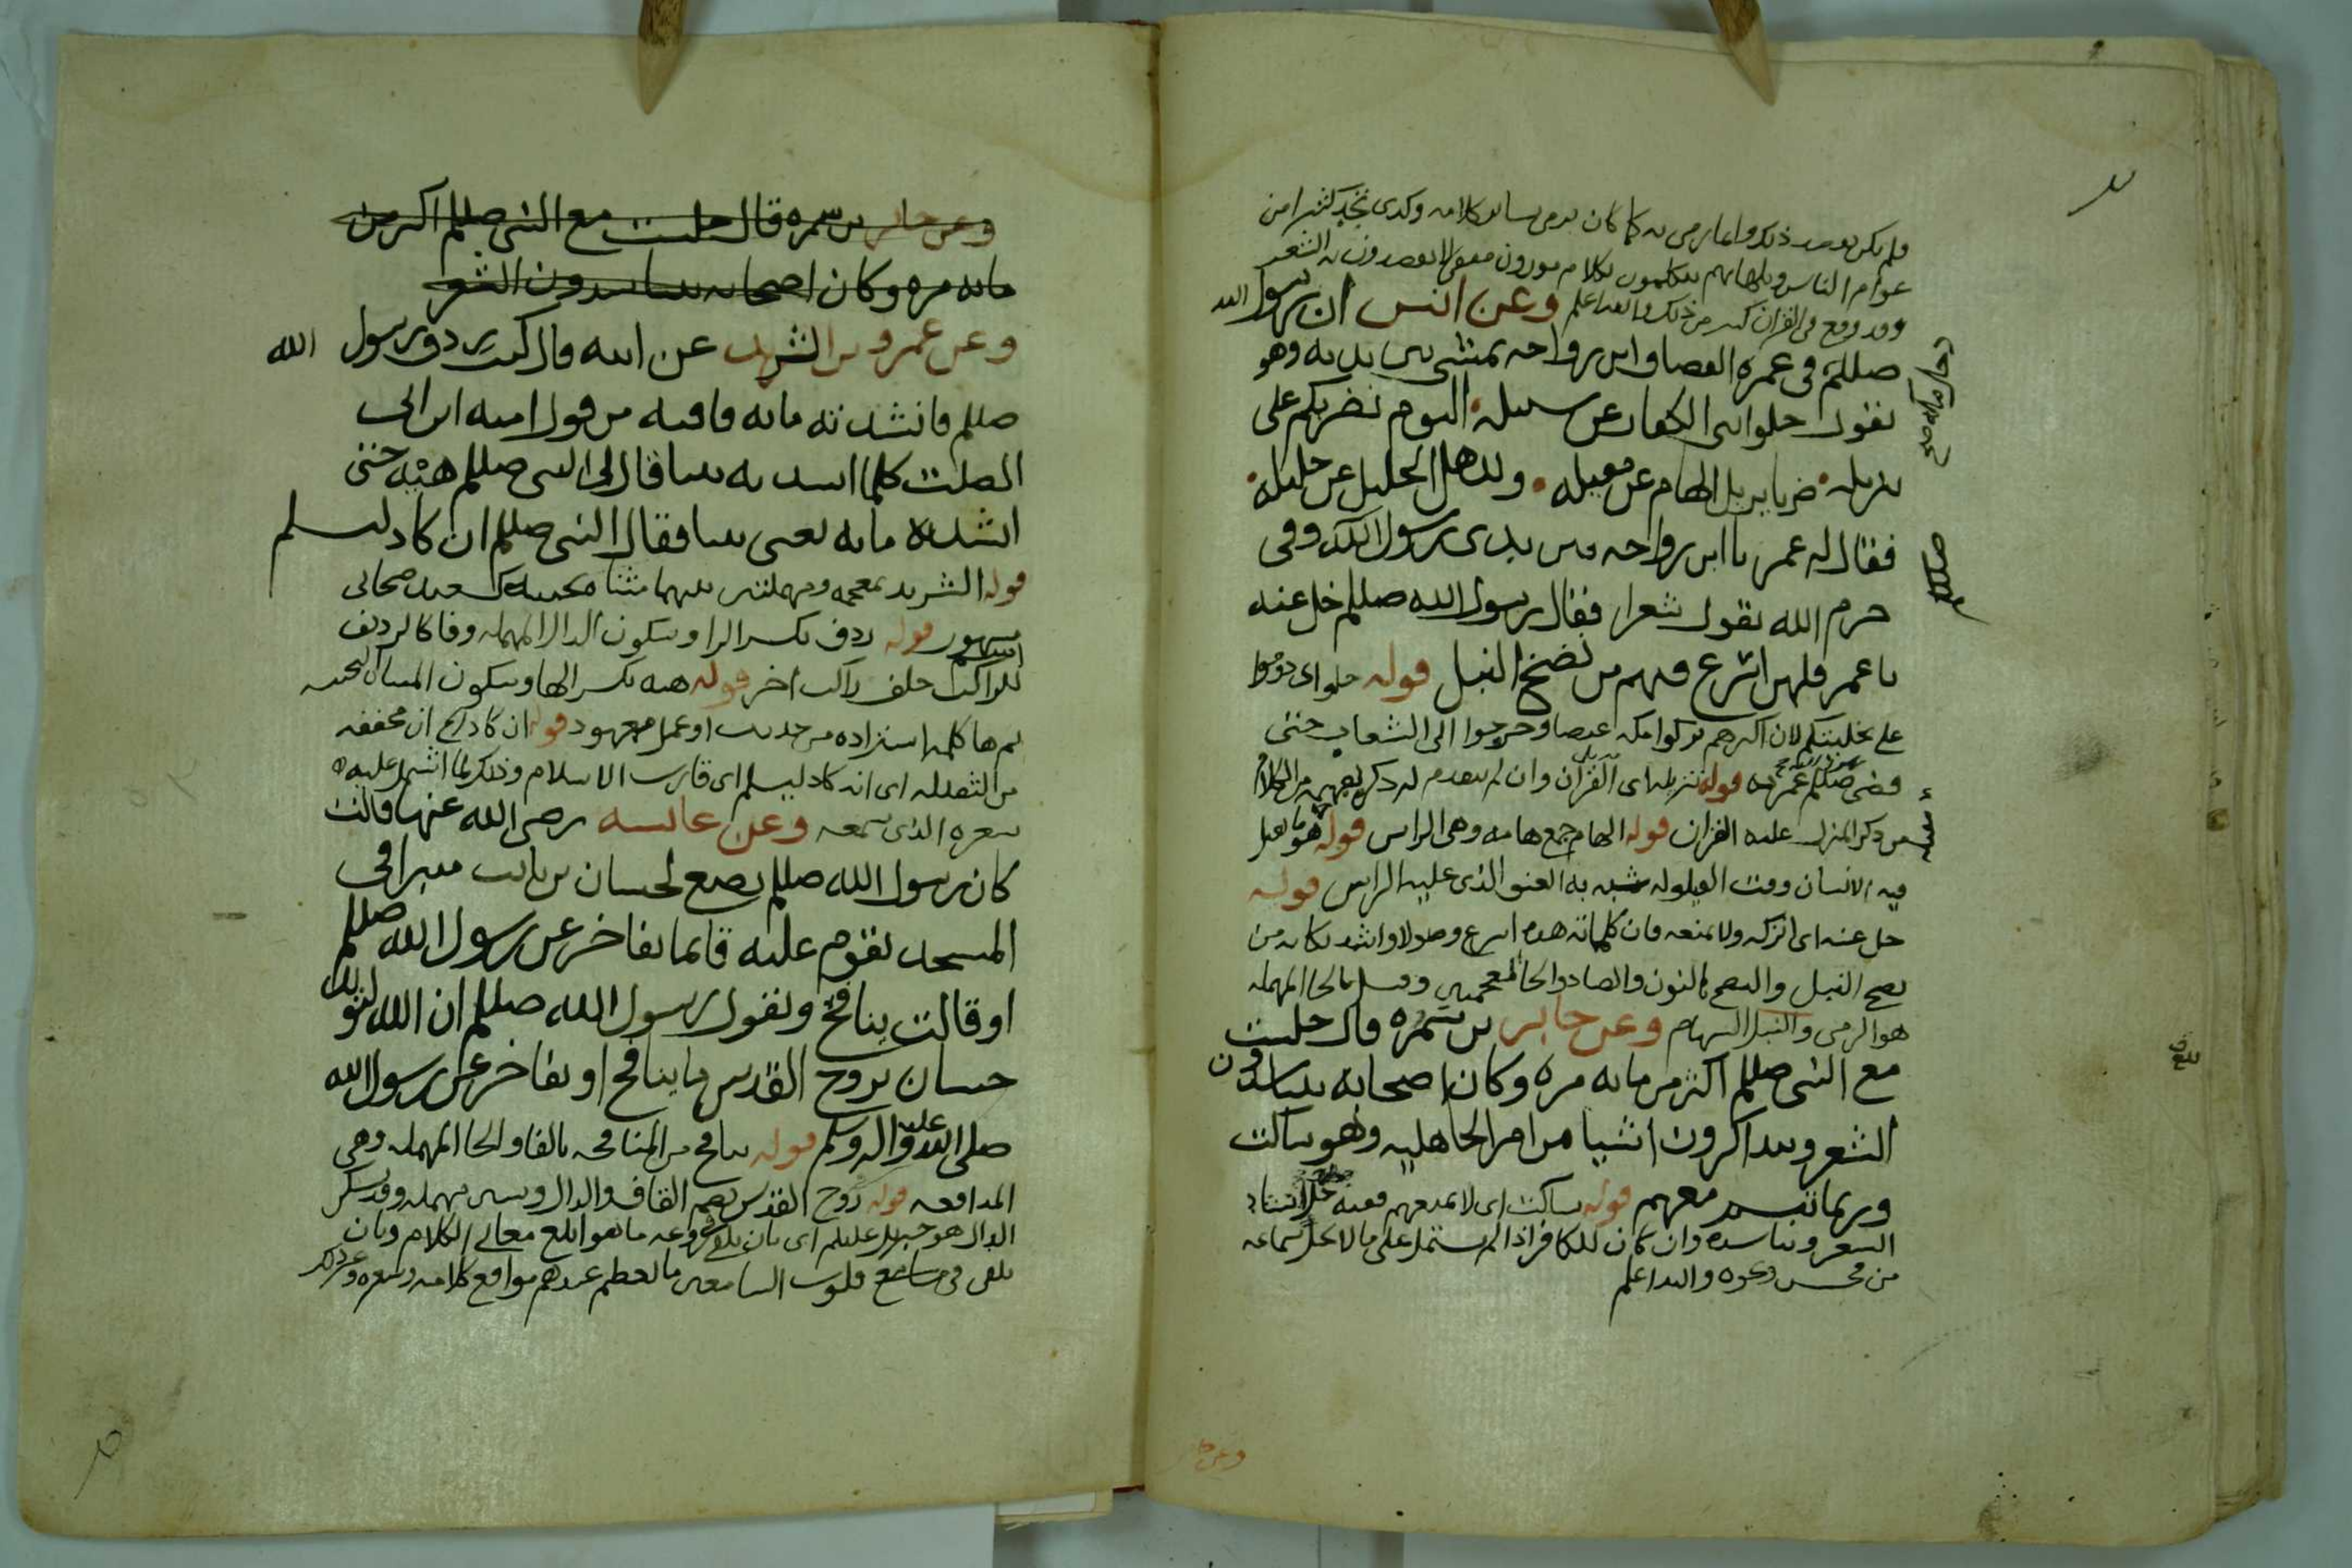 ولم يكن بقصد ذلك وانما رمى به كما كان يرمى بسائر كلامه وكذى تجد كثيرا من
عوام الناس وبلهائهم يتكلمون بكلام موزون مقفى لا يقصدون به الشعر
وقد وقع فى القران كثير من ذلك والله اعلم وعن انس ان رسول الله
صللم فى عمرة القضا وابن رواحه يمشى بين يديه وهو
يقول خلوا بنى الكفار عن سبيله اليوم نضربكم على
تنزيله ضربا يزيل الهام عن مقيله ويذهل الخليل عن خليله
فقال له عمر يا ابن رواحه بين يدى رسول الله وفى
صللم
حرم الله تقول شعرا فقال رسول الله صللم خل عنه
يا عمر فلهى اسرع فيهم من نضخ النبل قوله خلوا اى دوموا
على تخليتكم لان اكثرهم تركوا مكه وخرجوا الى الشعاب حتى
قضى صللم عمرته قوله تنزيله اى القران وان لم يتقدم له ذكر من الكلام
من ذكر المنزل عليه القران قوله الهام جمع هامه وهى الراس قوله هو ما يقيل
فيه الانسان وقت القيلوله شبه به العنق الذى عليه الراس قوله
خل عنه اى اتركه ولا تمنعه فان كلماته هذه اسرع وصولا واشد نكايه من
نضخ النبل والنضخ بالنون والضاد والخا المعجمتين وقيل بالحا المهمله
هو الرمى والنبل السهام وعن جابر بن سمره قال جلست
مع النبى صللم اكثر من مايه مره وكان اصحابه يتناشدون
الشعر ويتذاكرون اشيا من امر الجاهليه وهو ساكت
وربما تبسم معهم قوله ساكت اى لا يمنعهم ففيه حل انشاد
الشعر وتناشده وان كان للكافر اذا لم يشتمل على ما لا يحل سماعه
من فحش ونحوه والله اعلم
وعن جابر
وعن جابر بن سمره قال جلست مع النبى صللم اكثر من
مايه مره وكان اصحابه يتناشدون الشعر
وعن عمرو بن الشريد عن ابيه قال كنت ردف رسول الله
صللم فانشدته مايه قافيه من قول اميه ابن ابى
الصلت كلما انشدته بيتا قال لى النبى صللم هيه حتى
انشدته مايه يعنى بيتا فقال النبى صللم ان كاد ليسلم
قوله الشريد بمعجمه ومهملتين بينهما مثناه تحتيه كسعيد صحابى
مشهور قوله ردف بكسر الرا وسكون الدال المهمله وفا كالرديف
للراكب خلف راكب اخر قوله هيه بكسر الها وسكون المثناه التحتيه
ثم ها كلمه استزاده من حديث او عمل معهود قوله ان كاد الخ ان مخففه
من الثقيله اى انه كاد ليسلم اى قارب الاسلام وذلك لما اشتمل عليه
شعره الذى سمعه وعن عايشه رضى الله عنها قالت
كان رسول الله صللم يضع لحسان بن ثابت منبرا فى
المسجد يقوم عليه قايما يفاخر عن رسول الله صللم
او قالت ينافح ويقول رسول الله صللم ان الله ليؤيد
حسان بروح القدس ما ينافح او يفاخر عن رسول الله
صلى الله عليه واله وسلم قوله ينافح من المنافحه بالفا والحا المهمله وهى
المدافعه قوله روح القدس بضم القاف والدال وسين مهمله وقد تسكن
الدال هو جبريل عليلم اى بان يلقى فى روعه ما هو ابلغ معانى الكلام وبان
يلقى فى مسامع قلوب السامعين ما يعظم عندهم مواقع كلامه وشعره وغير ذلك